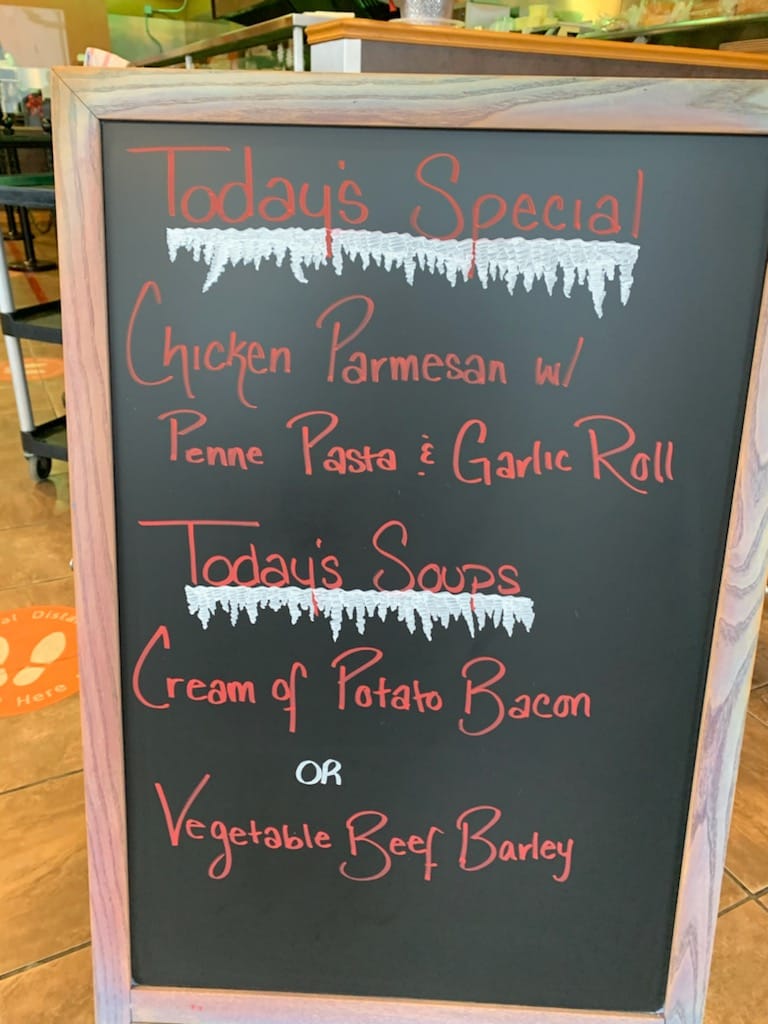 Today's Special
Chicken Parmesan w/
Penne Pasta & Garlic Roll
Today's Soups
Cream of Potato Bacon
OR
Vegetable Beef Barley
Here